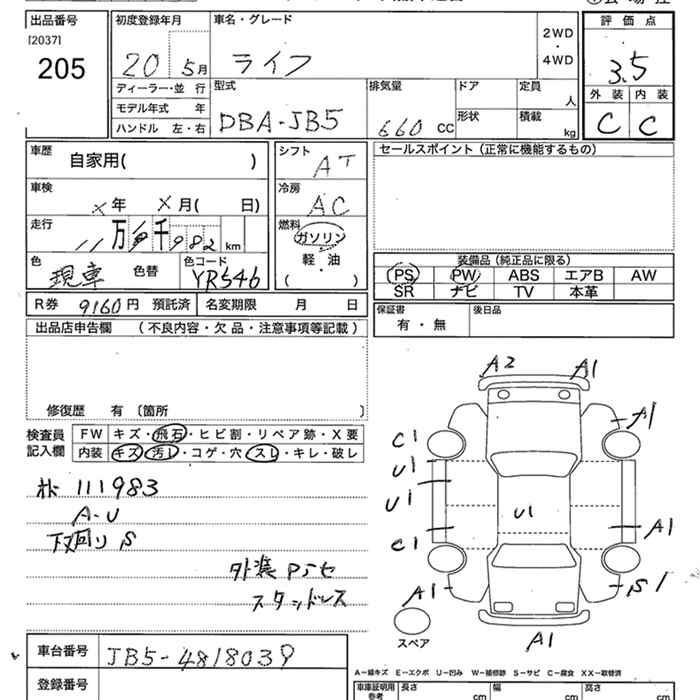 出品番号 初度登録年月 車名・グレード 2WD・4WD 評価点
[2037]
205 20 5月 ライフ 3.5
ディーラー・並行 型式 排気量 ドア 定員 人 外装 内装
モデル年式 年 DBA-JB5 660 CC 形状 積載 kg C C
ハンドル 左・右
車歴 自家用( ) シフト AT セールスポイント(正常に機能するもの)
車検 × 年 × 月( 日) 冷房 AC
走行 11 万 千 982 km 燃料 ガソリン
軽・油
( )
色 現車 色替 色コード YR546
装備品(純正品に限る)
PS PW ABS エアB AW
SR ナビ TV 本革
R券 9160円 預託済 名変期限 月 日
保証書 有・無 後日品
出品店申告欄 (不良内容・欠品・注意事項等記載)
修復歴 有 〔箇所 〕
検査員記入欄
FW キズ・飛石・ヒビ割・リペア跡・X要
内装 キズ・汚レ・コゲ・穴・スレ・キレ・破レ
111983
A-U
下回り S
外装 Pシセ
スタッドレス
A2 A1
A1
C1
U1
U1
U1
A1
C1
A1 S1
スペア
A1
車台番号 JB5-4818039
登録番号
A-線キズ E-エクボ U-凹み W-補修跡 S-サビ C-腐食 XX-取替済
車庫証明用参考 長さ cm 幅 cm 高さ cm